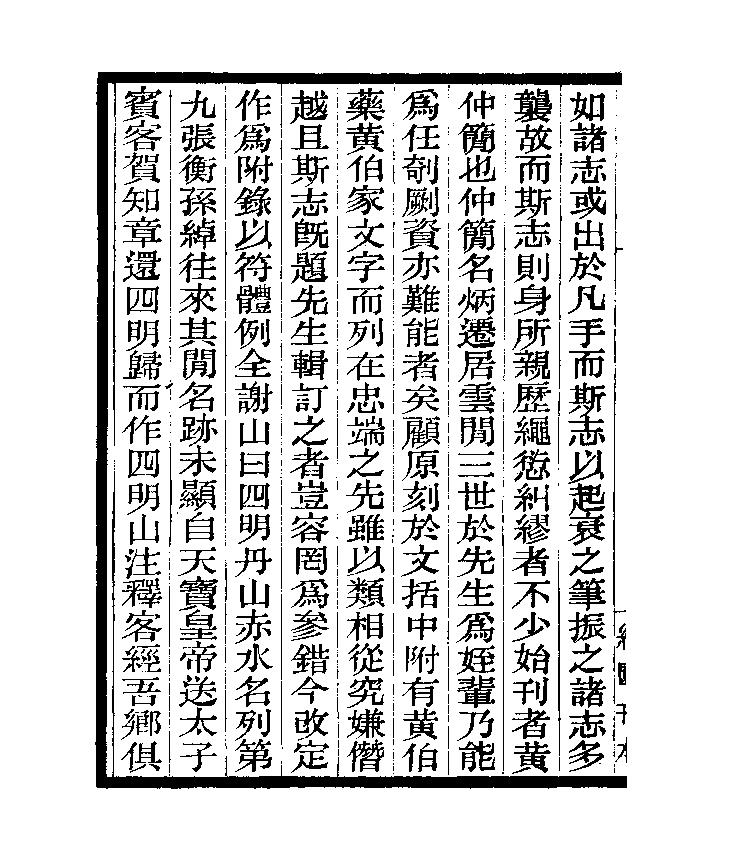 如諸志或出於凡手而斯志以起衰之筆振之諸志多
襲故而斯志則身所親歷繩愆糾繆者不少始刊者黃
仲簡也仲簡名炳遷居雲閒三世於先生爲姪輩乃能
爲任剞劂資亦難能者矣顧原刻於文括中附有黃伯
藥黃伯家文字而列在忠端之先雖以類相從究嫌僭
越且斯志旣題先生輯訂之者豈容罔爲參錯今改定
作爲附錄以符體例全謝山曰四明丹山赤水名列第
九張衡孫綽往來其閒名跡未顯自天寶皇帝送太子
賓客賀知章還四明歸而作四明山注釋客經吾鄉俱